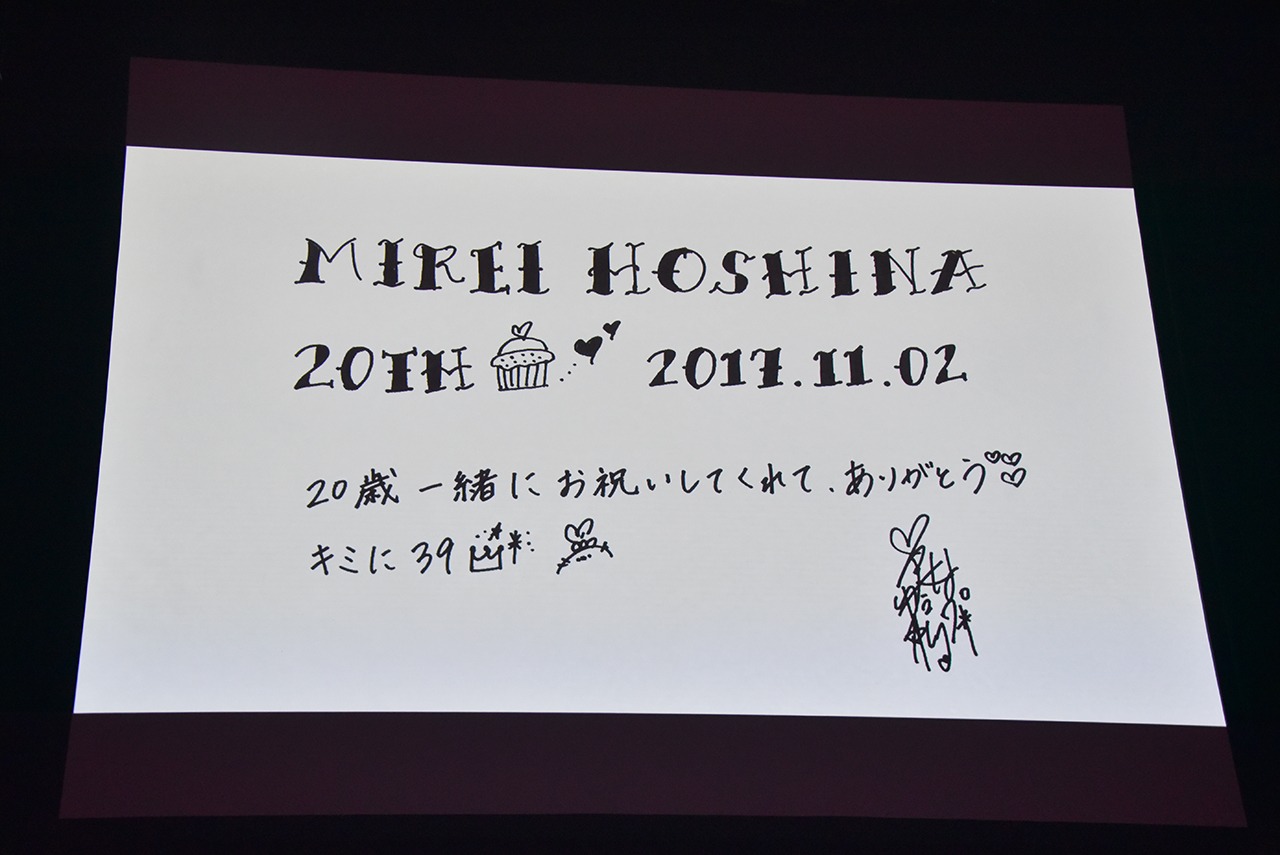 MIREI HOSHINA
20TH 2017.11.02
20歳 一緒に お祝いしてくれて、ありがとう
キミに 39